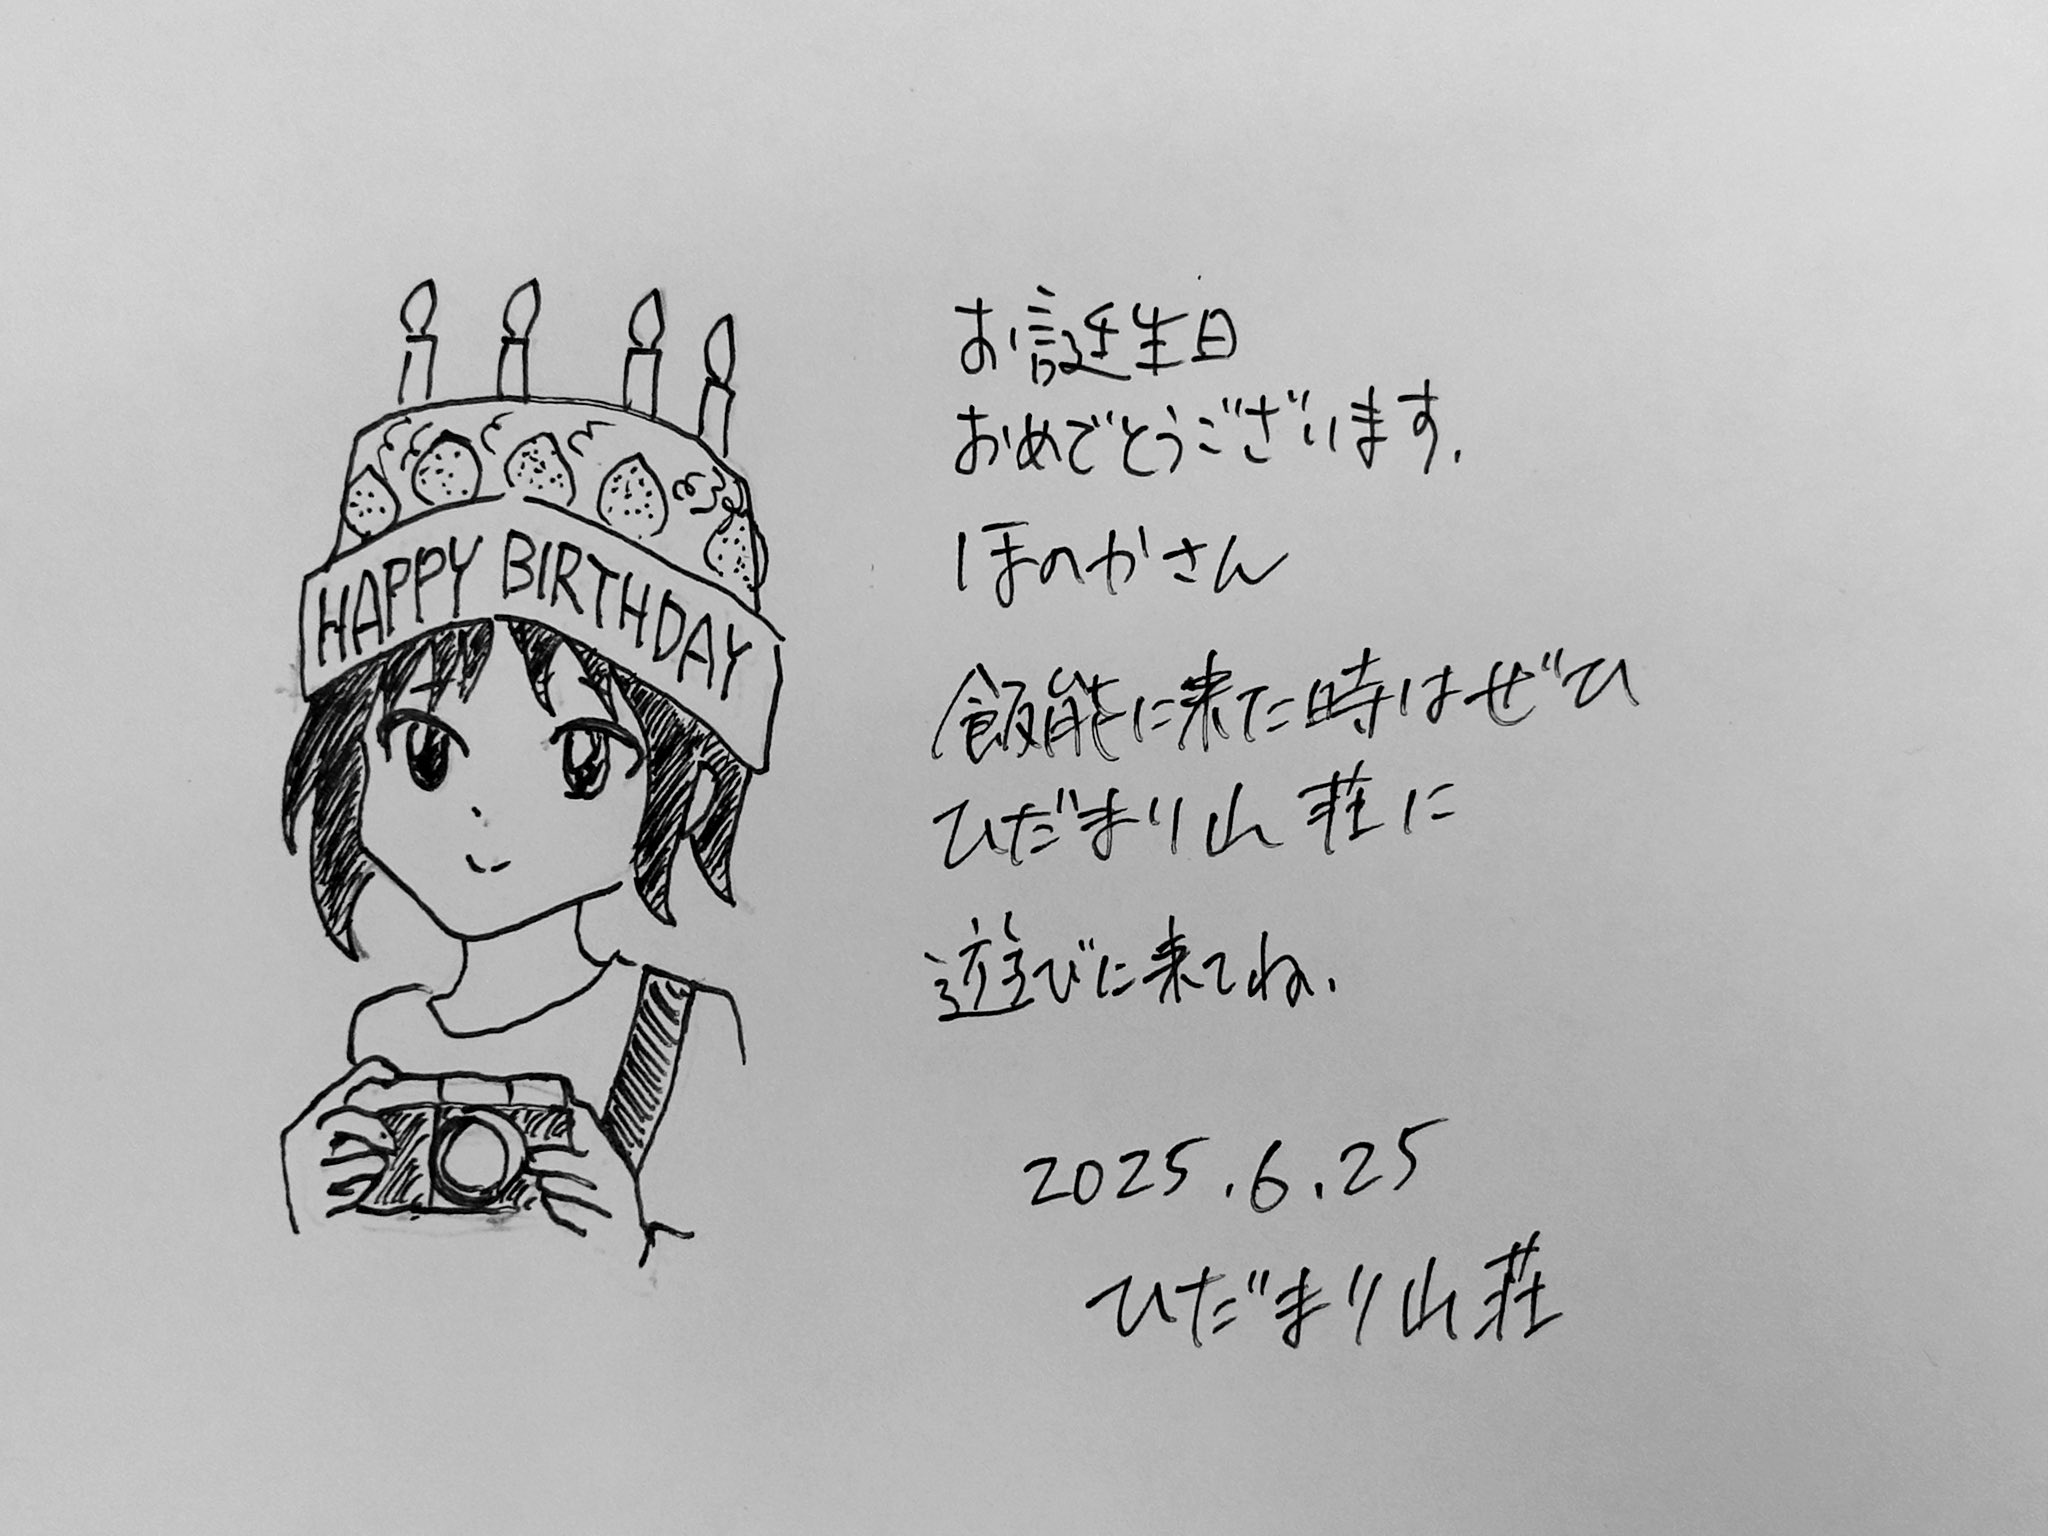 HAPPY BIRTHDAY
お誕生日
おめでとうございます.
ほのかさん
飯能に来た時はぜひ
ひだまり山荘に
遊びに来てね.
2025.6.25
ひだまり山荘